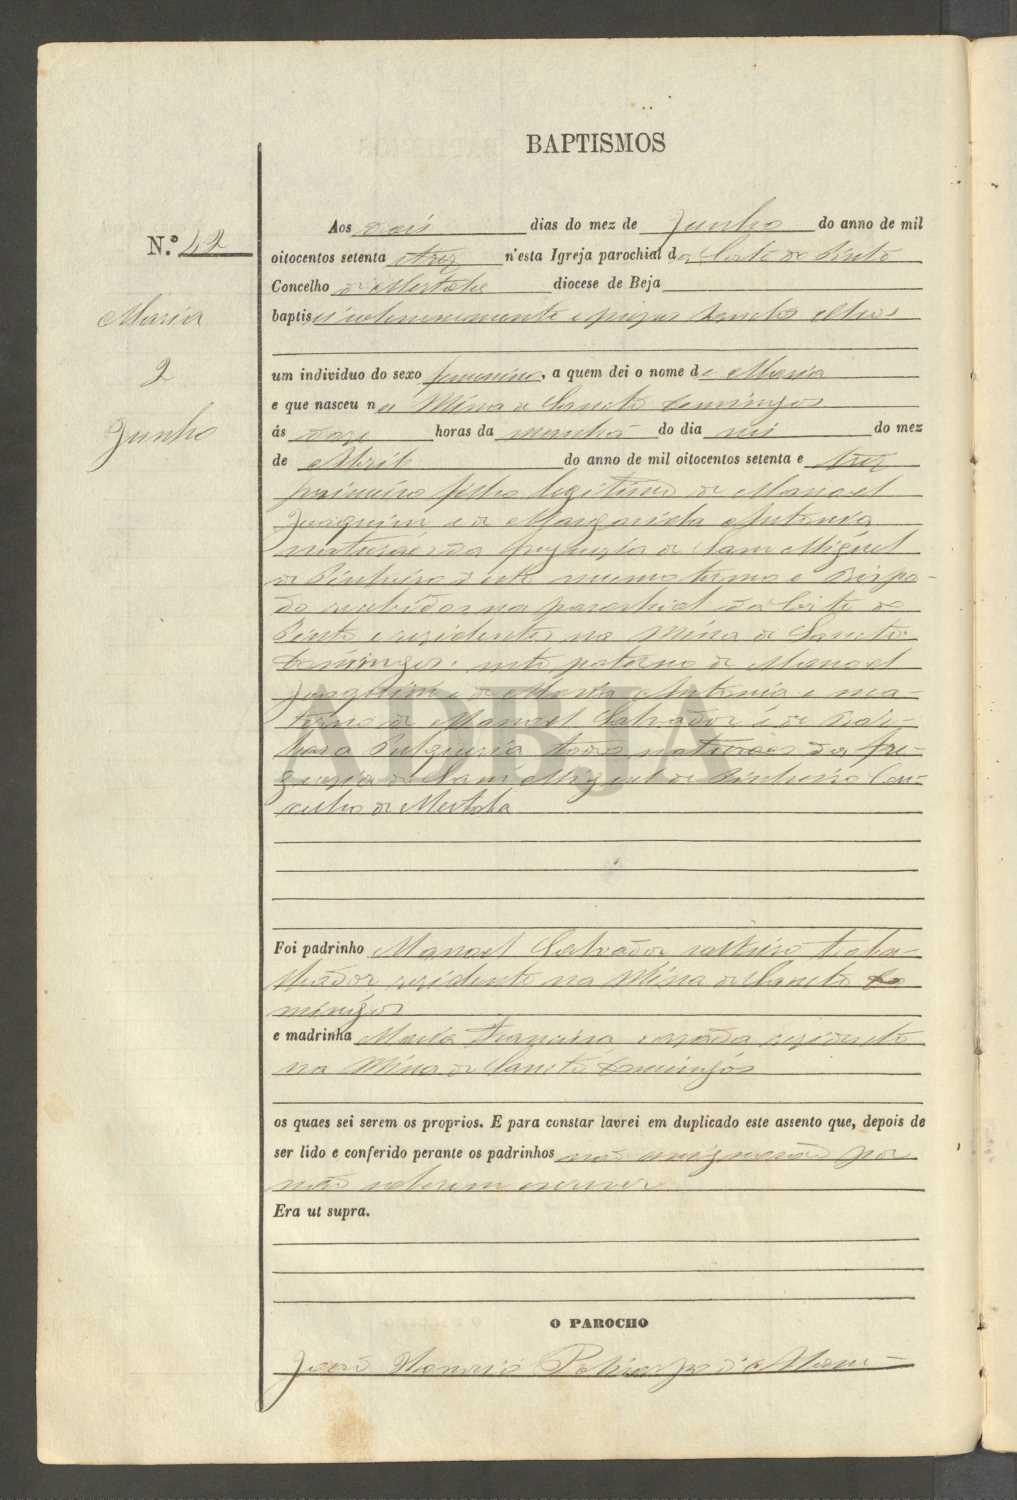 BAPTISMOS
N.º 42
Maria
2
Junho
Aos dois dias do mez de Junho do anno de mil
oitocentos setenta e trez n'esta Igreja parochial da Corte do Pinto
Concelho de Mertola diocese de Beja
baptisei solemnemente e puz os Sanctos Oleos
um individuo do sexo femenino, a quem dei o nome de Maria
e que nasceu na Mina de Sancto Domingos
ás doze horas da manhã do dia seis do mez
de Abril do anno de mil oitocentos setenta e trez
primeiro filho legitimo de Manoel
Joaquim e de Margarida Antonia
naturaes da freguezia de Sam Miguel
do Pinheiro d'este mesmo termo e Bispa-
do recebidos na parochial da Corte do
Pinto e rezidentes na Mina de Sancto
Domingos: neto paterno de Manoel
Joaquim e de Maria Antonia e ma-
terno de Manoel Salvador e de Bar-
bara todos naturaes da fre-
guezia de Sam Miguel do Pinheiro Con-
celho de Mertola
ADBJA
Foi padrinho Manoel Salvador solteiro traba-
lhador rezidente na Mina de Sancto Do
mingos
e madrinha Maria cazada rezidente
na Mina de Sancto Domingos
os quaes sei serem os proprios. E para constar lavrei em duplicado este assento que, depois de
ser lido e conferido perante os padrinhos não assignarão por
não saberem escrever
Era ut supra.
O PAROCHO
João